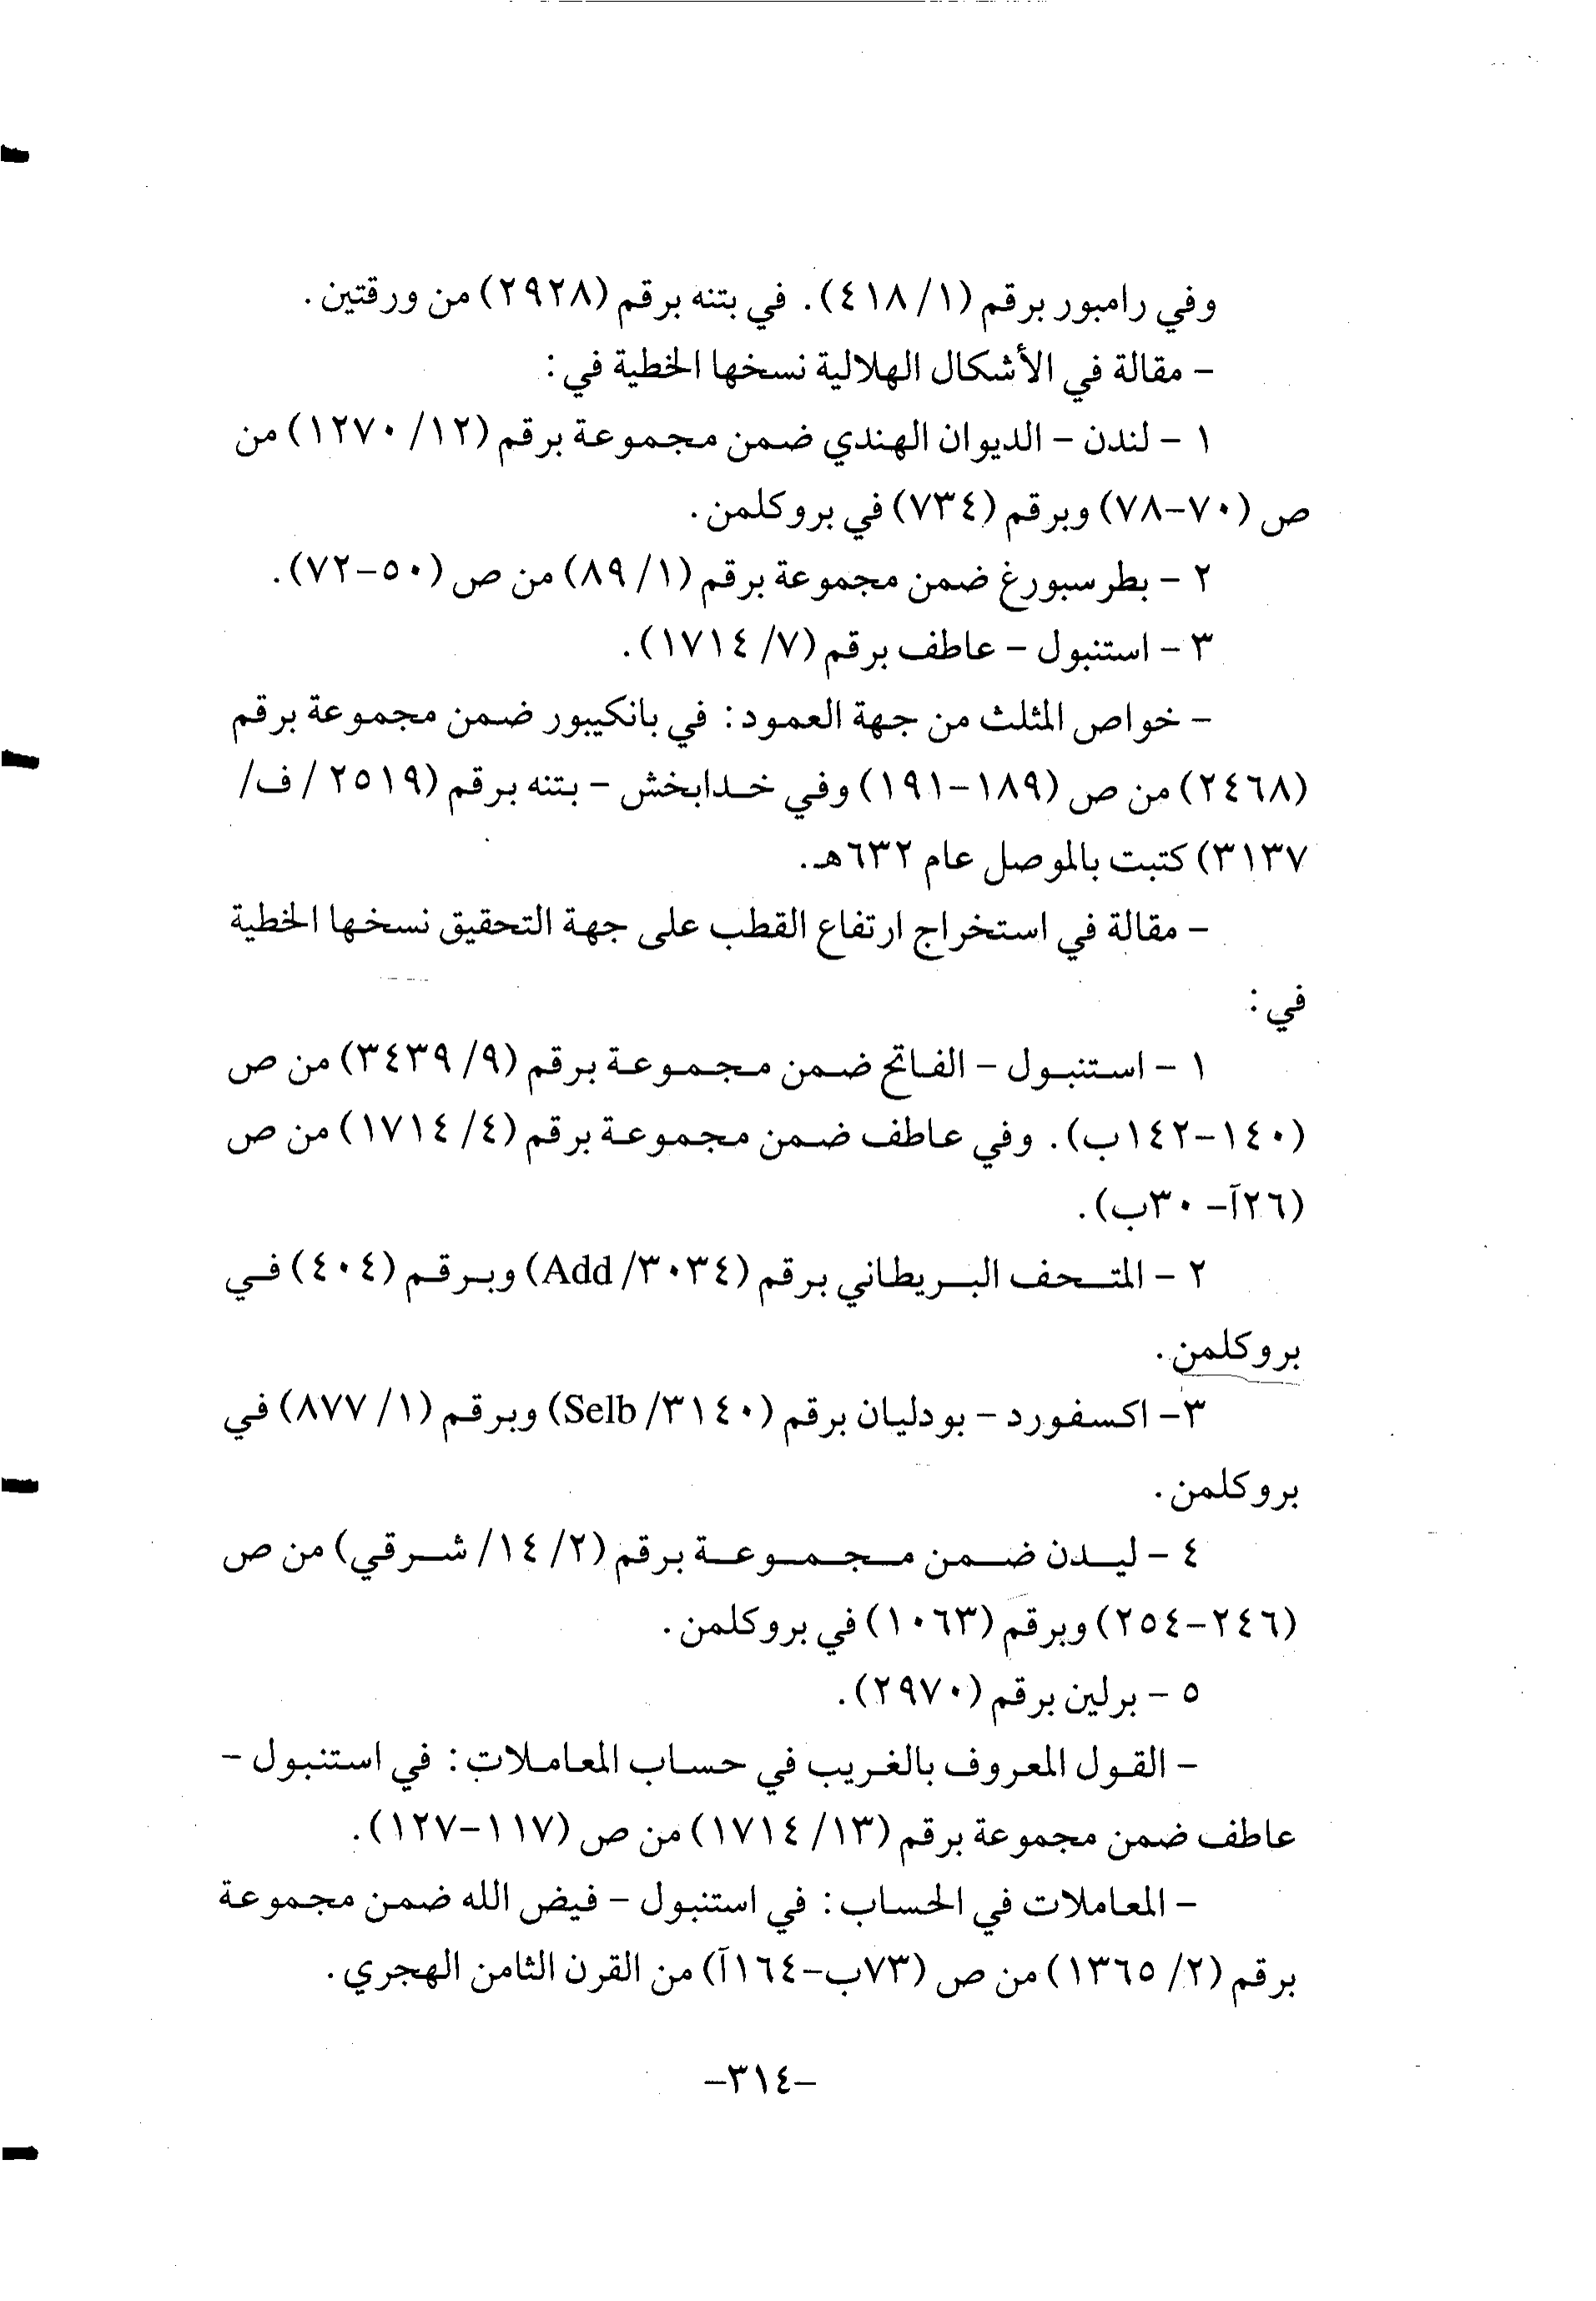 وفي رامبور برقم (١/ ٤١٨). في بتنه برقم (٢٩٢٨) من ورقتين.
- مقالة في الأشكال الهلالية نسخها الخطية في:
١ - لندن - الديوان الهندي ضمن مجموعة برقم (١٢/ ١٢٧٠) من
ص (٧٠-٧٨) وبرقم (٧٣٤) في بروكلمن.
٢ - بطرسبورغ ضمن مجموعة برقم (١/ ٨٩) من ص (٥٠-٧٢).
٣ - استنبول - عاطف برقم (٧/ ١٧١٤).
- خواص المثلث من جهة العمود: في بانكيبور ضمن مجموعة برقم
(٢٤٦٨) من ص (١٨٩-١٩١) وفي خدابخش - بتنه برقم (٢٥١٩/ ف/
٣١٣٧) كتبت بالموصل عام ٦٣٢هـ.
- مقالة في استخراج ارتفاع القطب على جهة التحقيق نسخها الخطية
في:
١ - استنبول - الفاتح ضمن مجموعة برقم (٩/ ٣٤٣٩) من ص
(١٤٠-١٤٢ب). وفي عاطف ضمن مجموعة برقم (٤/ ١٧١٤) من ص
(٢٦آ- ٣٠ب).
٢ - المتحف البريطاني برقم (٣٠٣٤/ Add) وبرقم (٤٠٤) في
بروكلمن.
٣- اكسفورد - بودليان برقم (٣١٤٠/ Selb) وبرقم (١/ ٨٧٧) في
بروكلمن.
٤ - ليدن ضمن مجموعة برقم (٢/ ١٤/ شرقي) من ص
(٢٤٦-٢٥٤) وبرقم (١٠٦٣) في بروكلمن.
٥ - برلين برقم (٢٩٧٠).
- القول المعروف بالغريب في حساب المعاملات: في استنبول -
عاطف ضمن مجموعة برقم (١٣/ ١٧١٤) من ص (١١٧-١٢٧).
- المعاملات في الحساب: في استنبول - فيض الله ضمن مجموعة
برقم (٢/ ١٣٦٥) من ص (٧٣ب-١٦٤آ) من القرن الثامن الهجري.
-٣١٤-